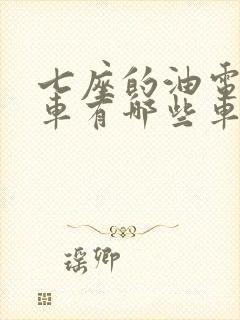 七座的油電
車有哪些車
瑶卿